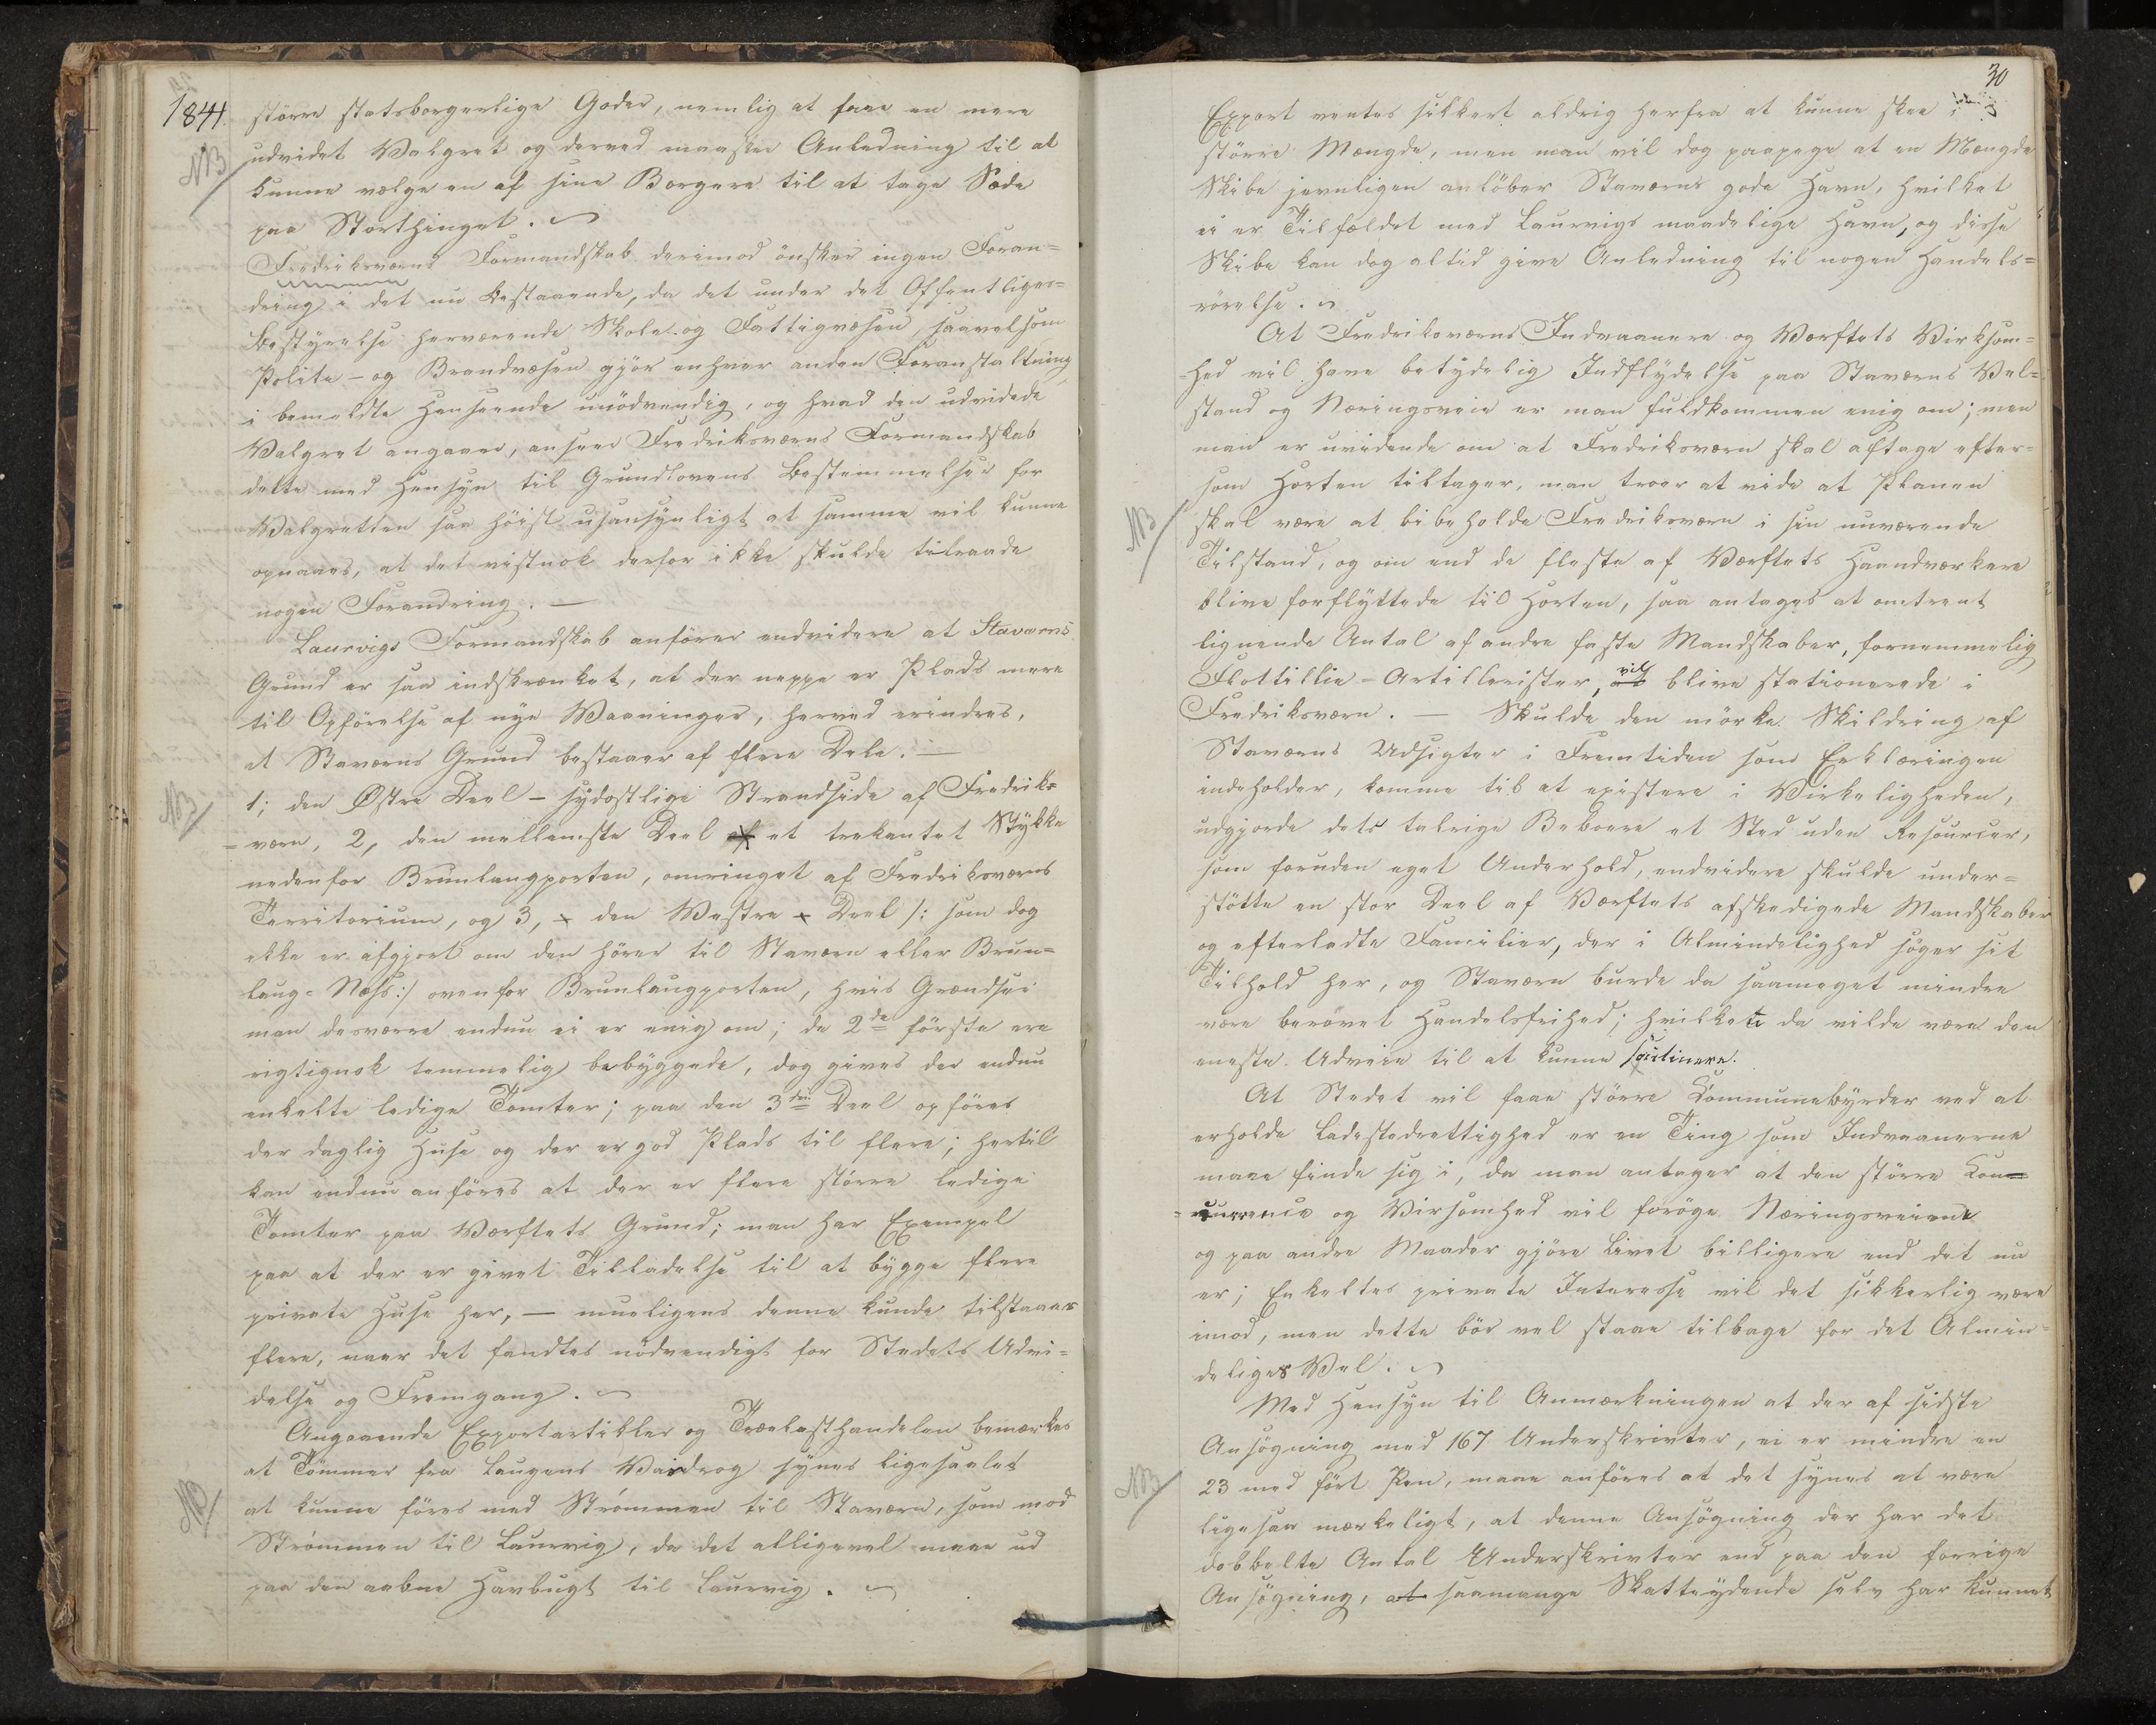 1841.
större statsborgerlige Goder, nemlig at faae en mere
NB
udvidet Valgret og derved maaskee Anledning til at
kunne vælge en af sine Borgere til at tage Sæde
paa Storthinget.
Fredriksværns Formandskab derimod önsker ingen Foran=
dring i det nu Bestaaende, da det under det Offentliges=
Bestyrelse herværende Skole og Fattigvæsen, saavelsom
Politie- og Brandvæsen gjör enhver anden Foranstaltning
i bemeldte Henseende unödvendig, og hvad den udvidede
Valgret angaaer, anseer Fredriksværns Formandskab
dette med Hensyn til Grundlovens Bestemmelser for
Valgretten saa höist usansynligt at samme vil kunne
opnaaes, at det vistnok derfor ikke skulde tilraade
nogen Forandring. —
Laurvigs Formandskab anförer endvidere at Staværns
Grund er saa indskrænket, at der neppe er Plads mere
til Opförelse af nye Vaaninger, herved erindres,
at Staværns Grund bestaaer af flere Dele. —
NB
1; den Østre Deel – sydostlige Strandside af Fredriks
=værn, 2, den mellemste Deel af et trekantet Stykke
nedenfor Brunlaugporten, omringet af Fredriksværns
Territorium, og 3, den Vestre Deel /: som dog
ikke er afgjort om den hörer til Staværn eller Brun=
laug-Næss:/ ovenfor Brunlaugporten, hvis Grændser
man desværre endnu ei er enig om; de 2de förste ere
rigtignok temmelig bebyggede, dog gives der endnu
enkelte ledige Tomter; paa den 3die Deel opföres
der daglig Huse og der er god Plads til flere; hertil
kan endnu anföres at der er flere större ledige
Tomter paa Værftets Grund; man har Exempel
paa at der er givet Tilladelse til at bygge flere
private Huse her, — mueligens denne kunde tilstaaes
flere, naar det fandtes nödvendigt for Stedets Udvi=
delse og Fremgang.
Angaaende Exportartikler og Trælasthandelen bemærkes
at Tömmer fra Laugens Vasdrog synes ligesaalet
NB
at kunne föres med Strömmen til Staværn, som mod
Strömmen til Laurvig, da det alligevel maae ud
paa den aabne Havbugt til Laurvig.
30
Export ventes sikkert aldrig herfra at kunne skee i
större Mængde, men man vil dog paapege at en Mængde
Skibe jevnligen anlöber Staværns gode Havn, hvilket
ei er Tilfældet med Laurvigs maadelige Havn, og disse
Skibe kan dog altid give Anledning til nogen Handels=
rörelse.
At Fredriksværns Indvaanere og Værftets Virksom=
=hed vil have betydelig Indflydelse paa Staværns Vel=
stand og Næringsveie er man fuldkommen enig om; men
man er uvidende om at Fredriksværn skal aftage efter=
som Horten tiltager, man troer at vide at Planen
NB
skal være at bibeholde Fredriksværn i sin nuværende
Tilstand, og om end de fleste af Værftets Haandværkere
blive forflyttede til Horten, saa antages at omtrent
lignende Antal af andre faste Mandskaber, fornemmelig
Flottillie-Artillerister, at vil blive stationerede i
Fredriksværn. — Skulde den mörke Skildring af
Staværns Udsigter i Fremtiden som Erklæringen
indeholder, komme til at existere i Virkeligheden,
udgjorde dets talrige Beboere et Sted uden Resourcer,
som foruden eget Underhold, endvidere skulde under=
stötte en stor Deel af Værftets afskedigede Mandskaber
og efterladte Familier, der i Almindelighed söger sit
Tilhold her, og Staværn burde da saameget mindre
være berövet Handelsfrihed; hvilket da vilde være den
eneste Udveie til at kunne soutinere.
At Stedet vil faae större Communebyrder ved at
erholde Ladestedrettighed er en Ting som Indvaanerne
maae finde sig i, da man antager at den större Con=
=currence og Virsomhed vil foröge Næringsveiene
og paa andre Maader gjöre Livet billigere end det nu
er; Enkeltes private Interesse vil det sikkerlig være
imod, men dette bör vel staae tilbage for det Almin=
deliges Vel.
Med Hensyn til Anmærkningen at der af sidste
Ansögning med 167 Underskrivter, ei er mindre en
NB
23 med fört Pen, maae anföres at det synes at være
ligesaa mærkeligt, at denne Ansögning der har det
dobbelte Antal Underskrivter end paa den forrige
Ansögning, at saamange Skatteydende selv har kunnet